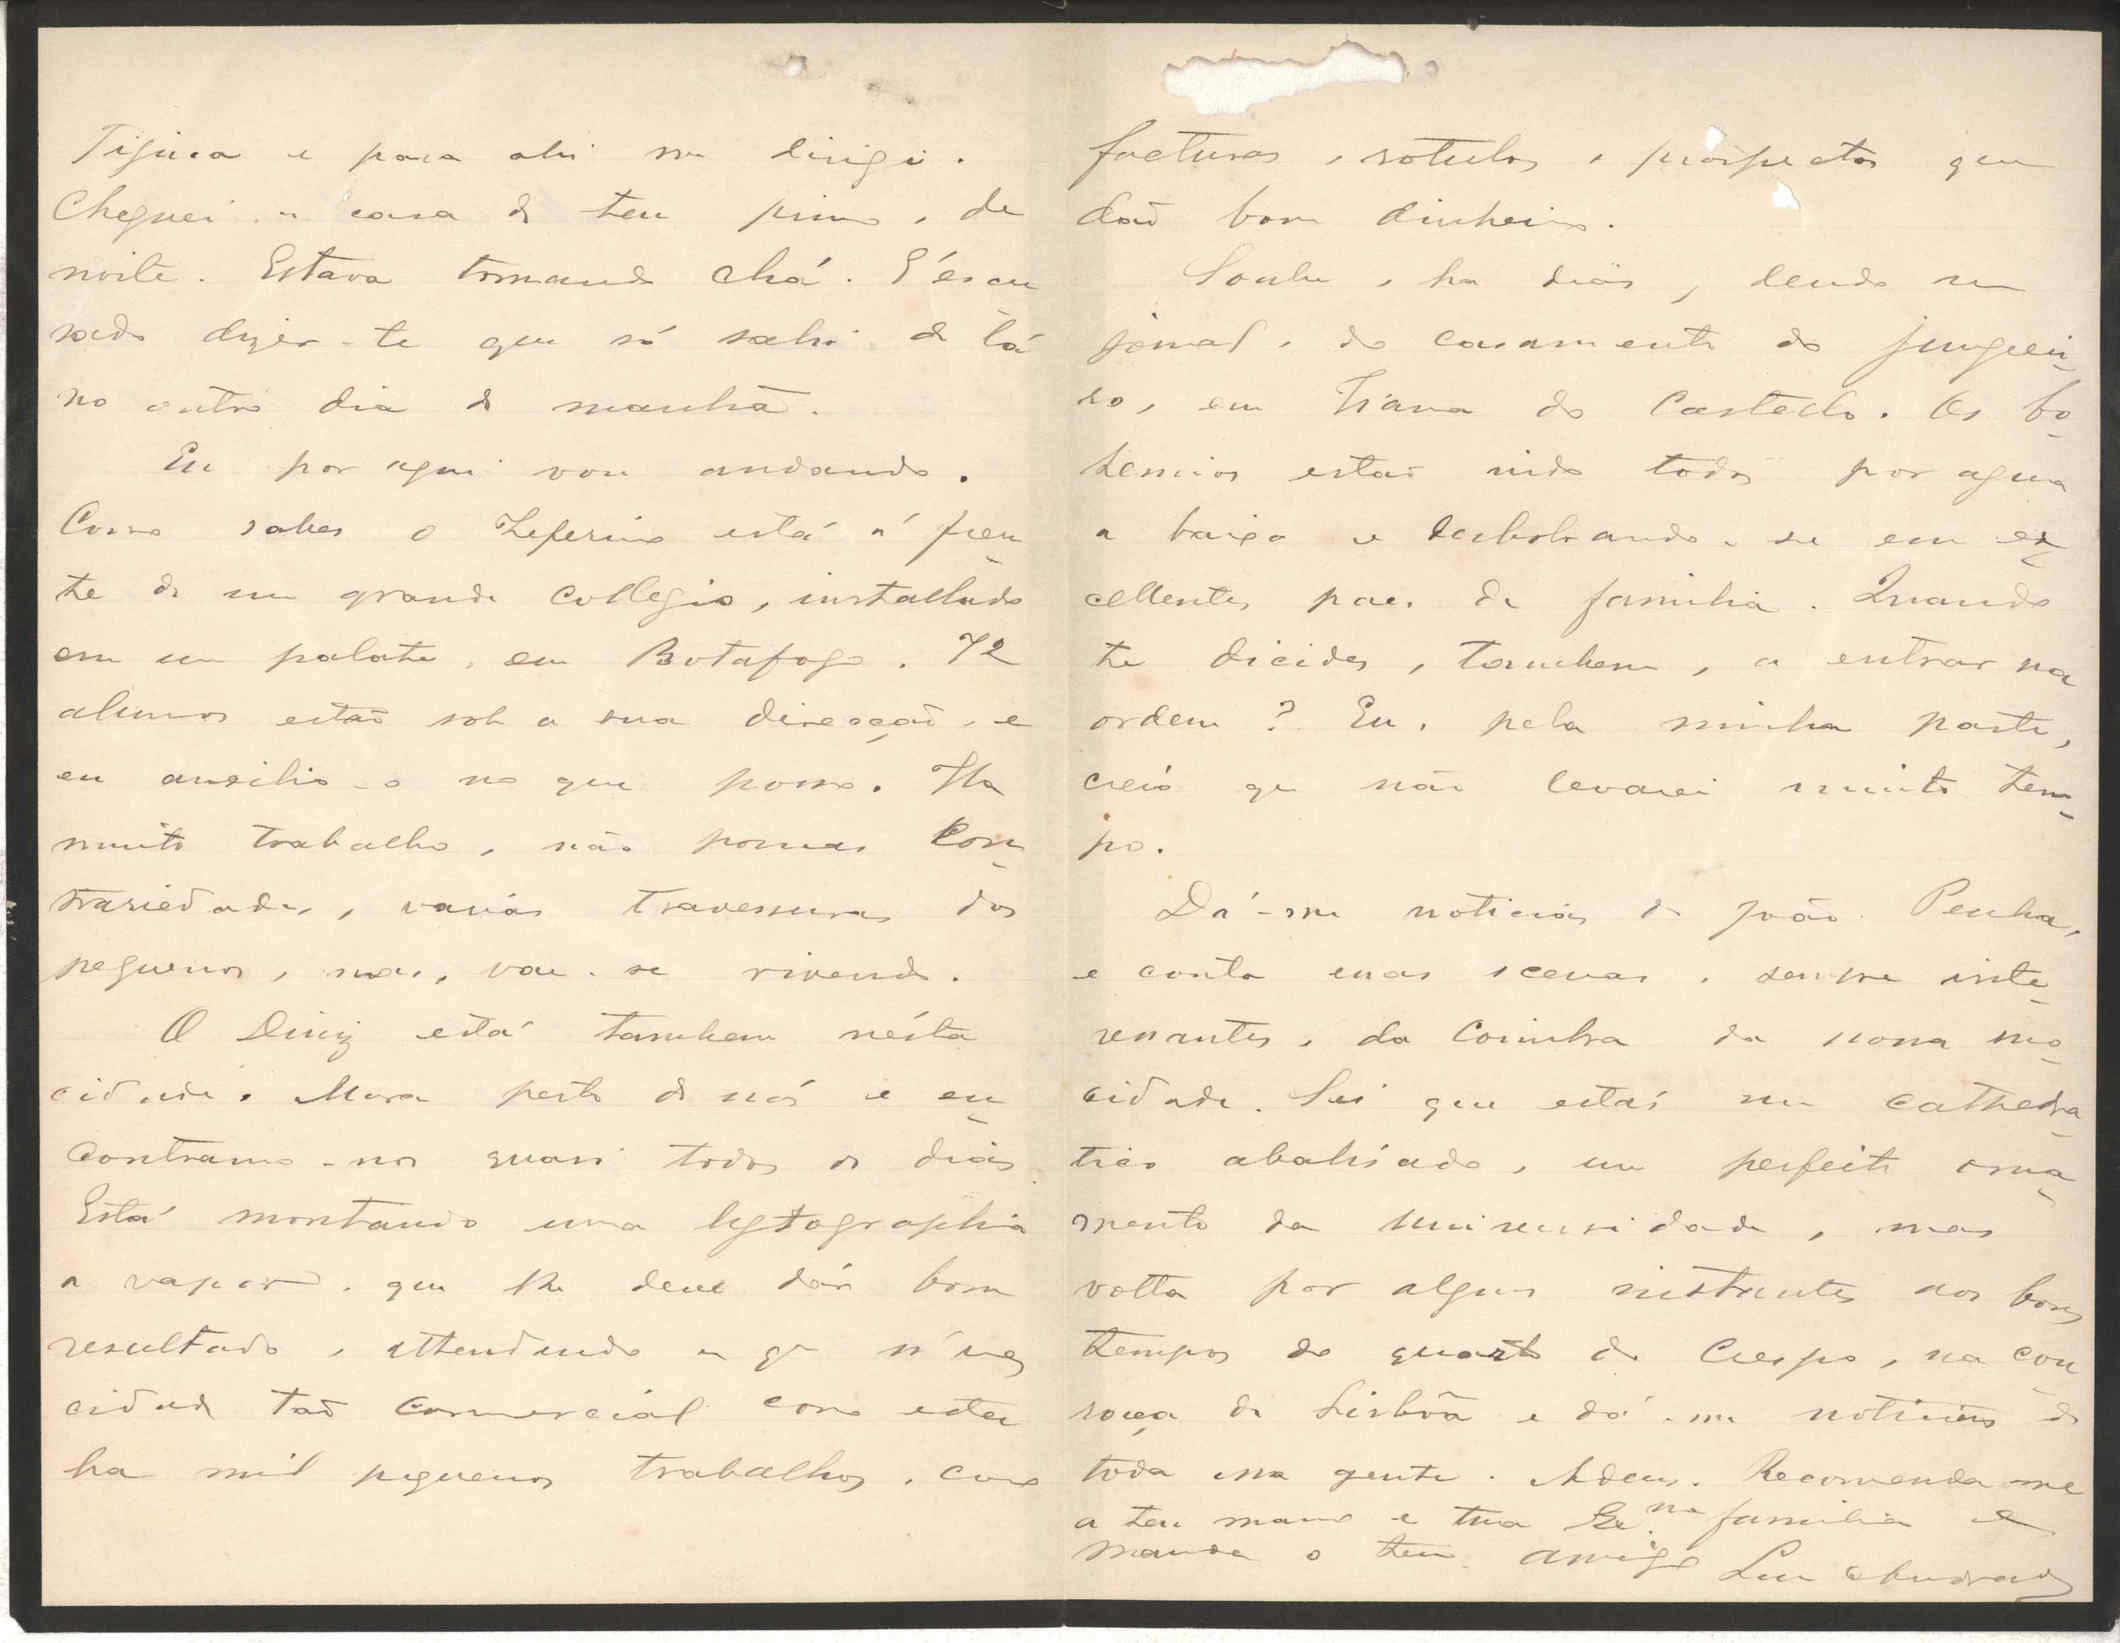 Tijuca e para ahi me dirigi.
Cheguei a casa de teu primo, de
noite. Estava tomando chá. E' escu
sado dizer-te que só sahi de lá
no outro dia de manhã.
Eu por aqui vou andando.
Como sabes o Zeferino está á fren-
te de um grande collegio, installado
em um palacete, em Botafogo. 72
alumnos estão sob a sua direcção, e
eu auxilio-o no que posso. Ha
muito trabalho, não poucas con-
trariedades, varias travessuras dos
pequenos, mas, vae-se vivendo.
O Diniz está tambem nésta
cidade. Mora perto de nós e en-
contramo-nos quasi todos os dias.
Está montando uma lytographia
a vapor, que lhe deve dár bom
resultado, attendendo a que n'uma
cidade tão commercial como esta
ha mil pequenos trabalhos, como
facturas, rotulos, prospectos que
dão bom dinheiro.
Soube, ha dias, lendo um
jornal, do casamento do Junquei-
ro, em Viana do Castello. Os bo-
hemios estão indo todos por agua
a baixo e desdobrando-se em ex-
cellentes paes de familia. Quando
te dicides, tambem, a entrar na
ordem? Eu, pela minha parte,
creio que não levarei muito tem-
po.
Dá-me noticias de João Penha,
e conta umas scenas, sempre inte-
ressantes, da Coimbra da nossa mo-
cidade. Sei que estás um cathedra-
tico abalisado, um perfeito orna-
mento da Universidade, mas
volta por alguns instantes aos bons
tempos do quarto do Crespo, na cou-
raça de Lisbôa e dá-me noticias de
toda essa gente. Adeus. Recomenda-me
a teu mano e tua Ex.ma familia e
manda o teu amigo Luiz Andrade